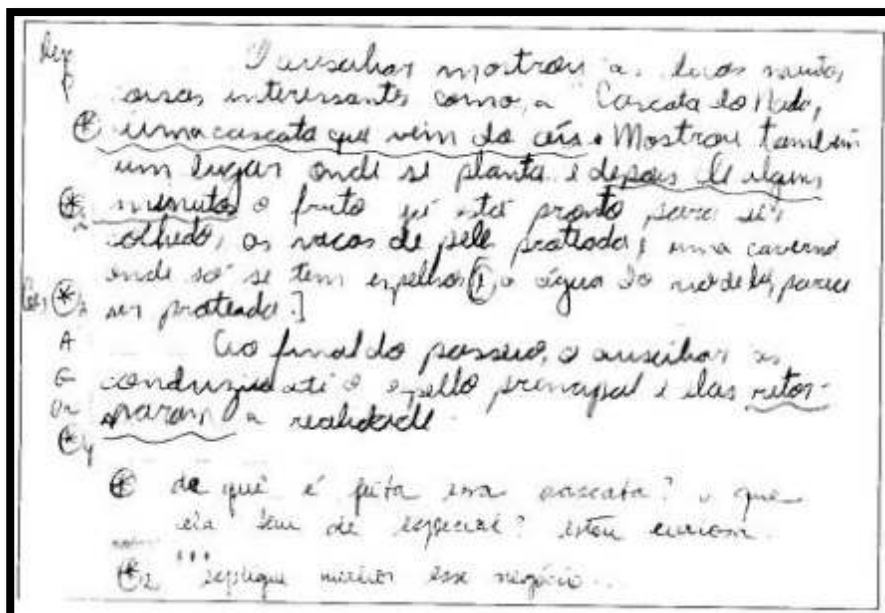 O auxiliar mostrou as duas muitas
coisas interessantes como, a "Cascata do Nada,
* uma cascata que vem do céu. Mostrou também
um lugar onde se planta e depois de alguns
*2 minutos o fruto já está pronto para ser
colhido, as vacas de pele prateada, uma caverna
onde só se tem espelhos, a água do rio deles parece
*3 ser prateada.]
A Ao final do passeio, o auxiliar as
G conduziu até o espelho principal e elas retor-
naram a realidade.
*4
* de que é feita essa cascata? o que
ela tem de especial? estou curiosa.
*2 ... explique melhor esse negócio...